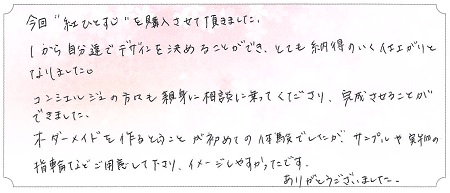 今回“紅ひとすじ”を購入させて頂きました。
1から自分達でデザインを決めることができ、とても納得のいく仕上がりと
なりました。
コンシェルジュの方にも親身に相談に乗ってくださり、完成させることが
できました。
オーダーメイドを作るということが初めての体験でしたが、サンプルや実物の
指輪などご用意して下さり、イメージしやすかったです。
ありがとうございました。